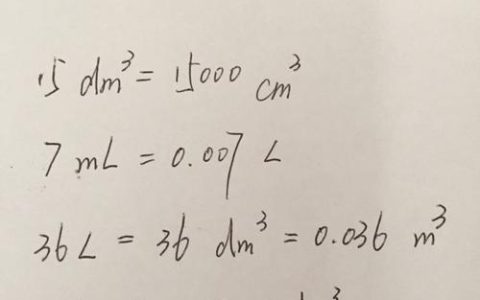 15 dm³ = 15000 cm³
7 mL = 0.007 L
36 L = 36 dm³ = 0.036 m³